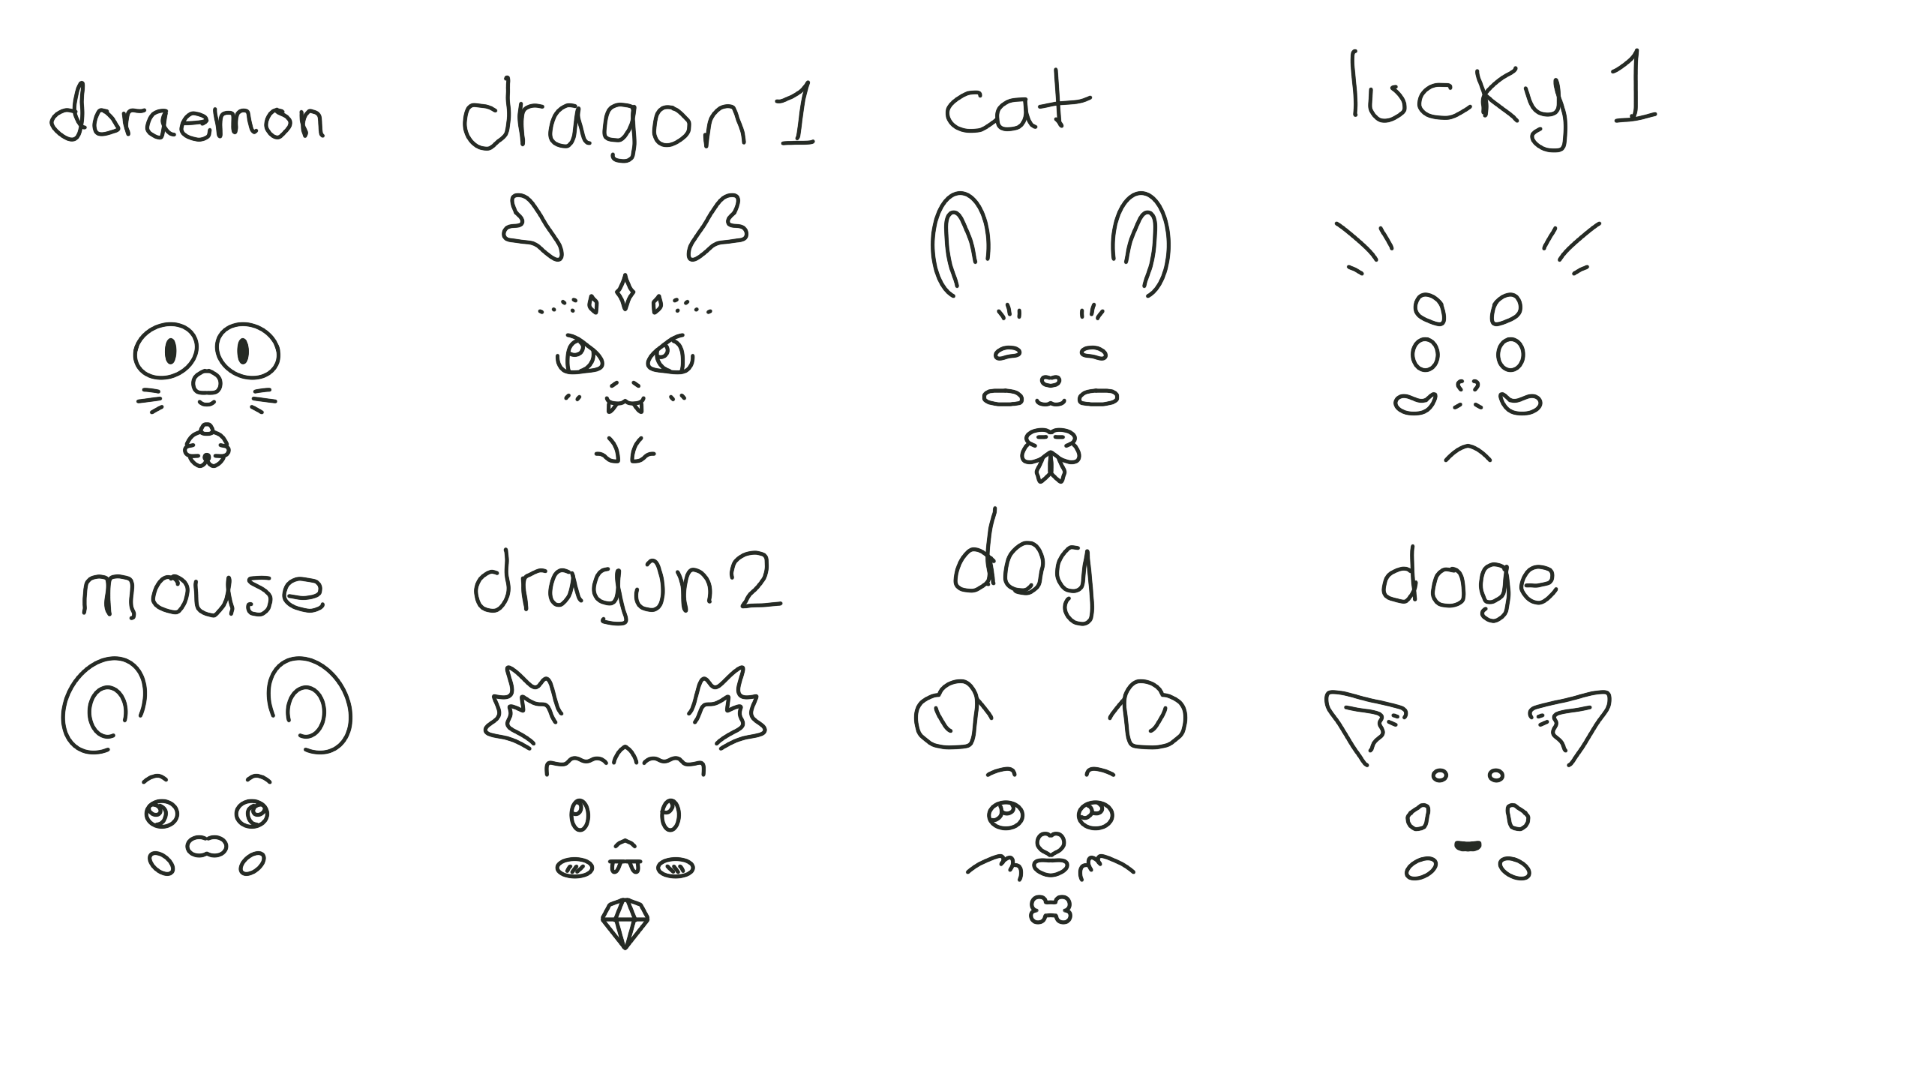 doraemon
dragon 1
cat
lucky 1
mouse
dragon 2
dog
doge